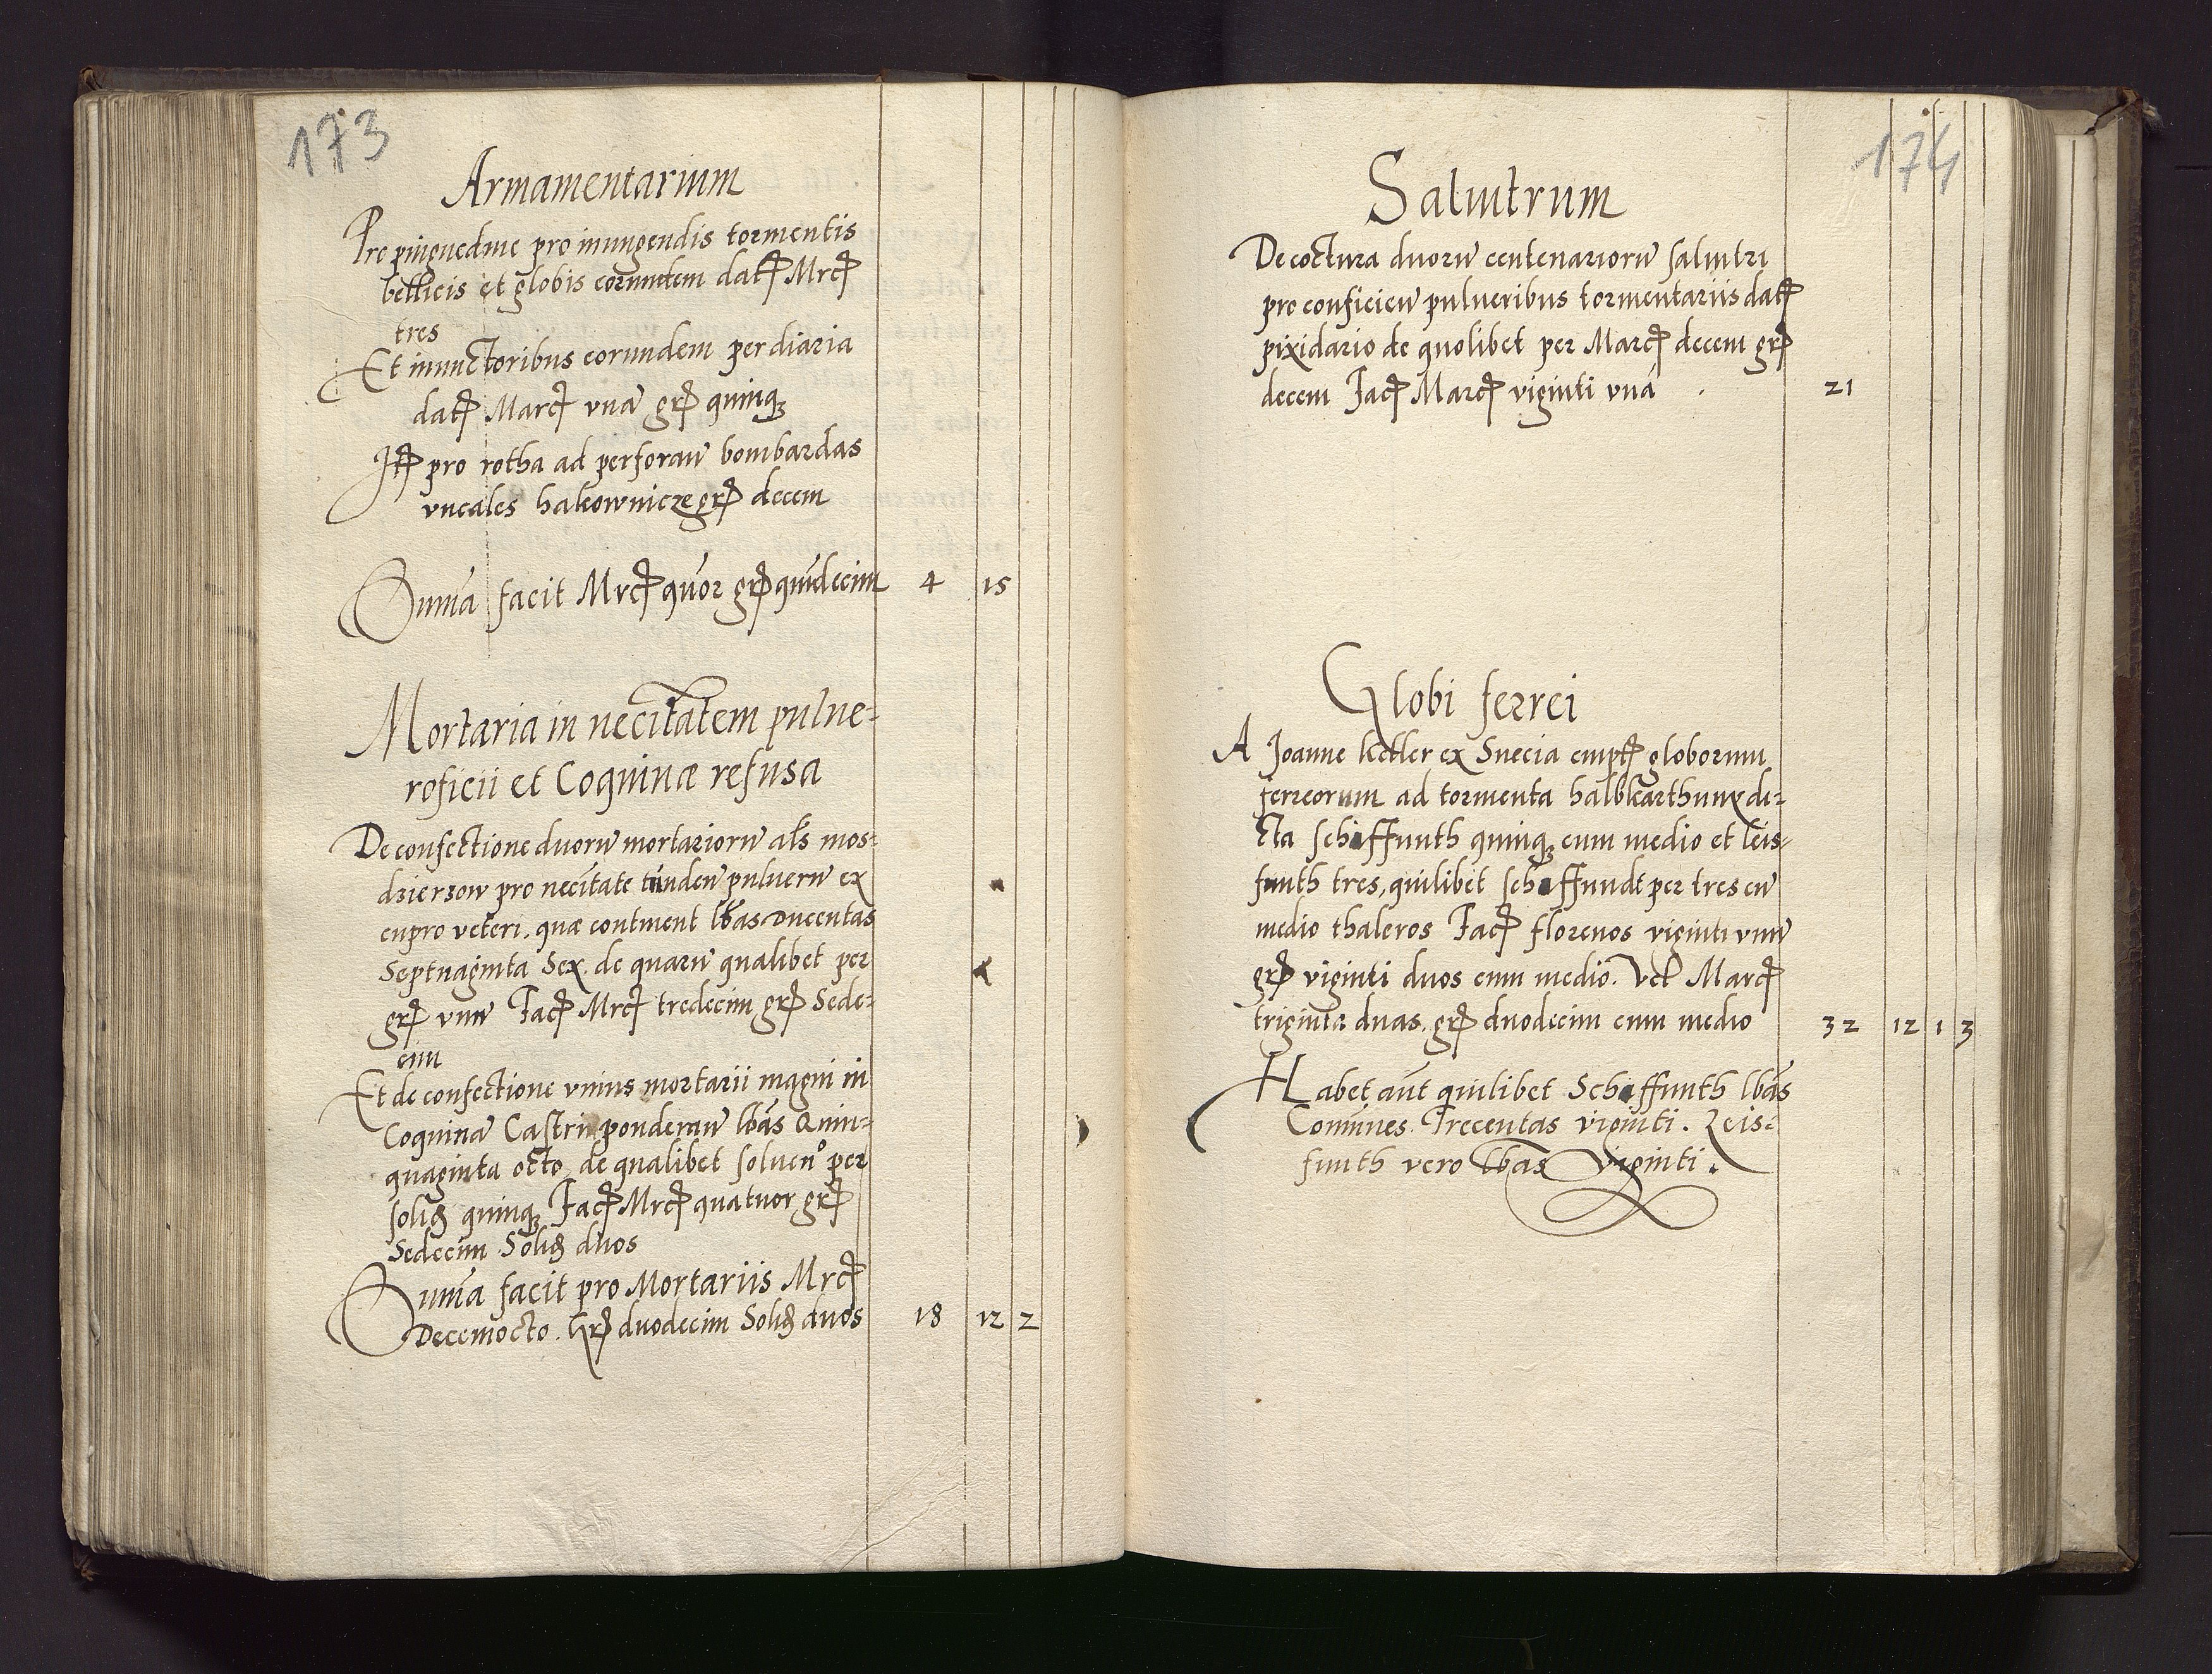 173
Armamentarium
Pro pinguedine pro inungendis tormentis
bellicis et globis eorundem dat Mrc
tres
Et inunctoribus eorundem per diaria
dat Marc vna gr quinq
It pro rotha ad perforan bombardas
vncales hakownicze gr decem
Suma facit Mrc quor gr quindecim 4 15
Mortaria in necitatem pulue-
roficii et Coquinæ refusa
De confectione duoru mortarioru als mos-
dzierzow pro necitate tunden pulueru ex
cupro veteri. quæ continent lbas Ducentas
Septuaginta Sex. de quaru qualibet per
gr vnu Fac Mrc tredecim gr Sede-
cim
Et de confectione vnius mortarii magni in
Coquina Castri ponderan lbas Quin-
quaginta octo, de qualibet soluen° per
solid quinq Fac Mrc quatuor gr
Sedecim Solid duos
Suma facit pro Mortariis Mrc
Decemocto. Gr duodecim Solid duos 18 12 2
174
Salnitrum
De coctura duoru centenarioru salnitri
pro conficien pulueribus tormentariis dat
pixidario de quolibet per Marc decem gr
decem Fac Marc viginti vna 21
Globi ferrei
A Joanne ketler ex Suecia empt globorum
ferreorum ad tormenta halbkarthunx di-
cta schiffunth quinq cum medio et leis-
funth tres, quilibet schiffundt per tres cu
medio thaleros Fac florenos viginti vnu
gr viginti duos cum medio. Vel Marc
triginta duas. gr duodecim cum medio 32 12 1 3
Habet aut quilibet Schiffunth lbas
Comunes Trecentas viginti. Leis-
funth vero lbas Viginti.